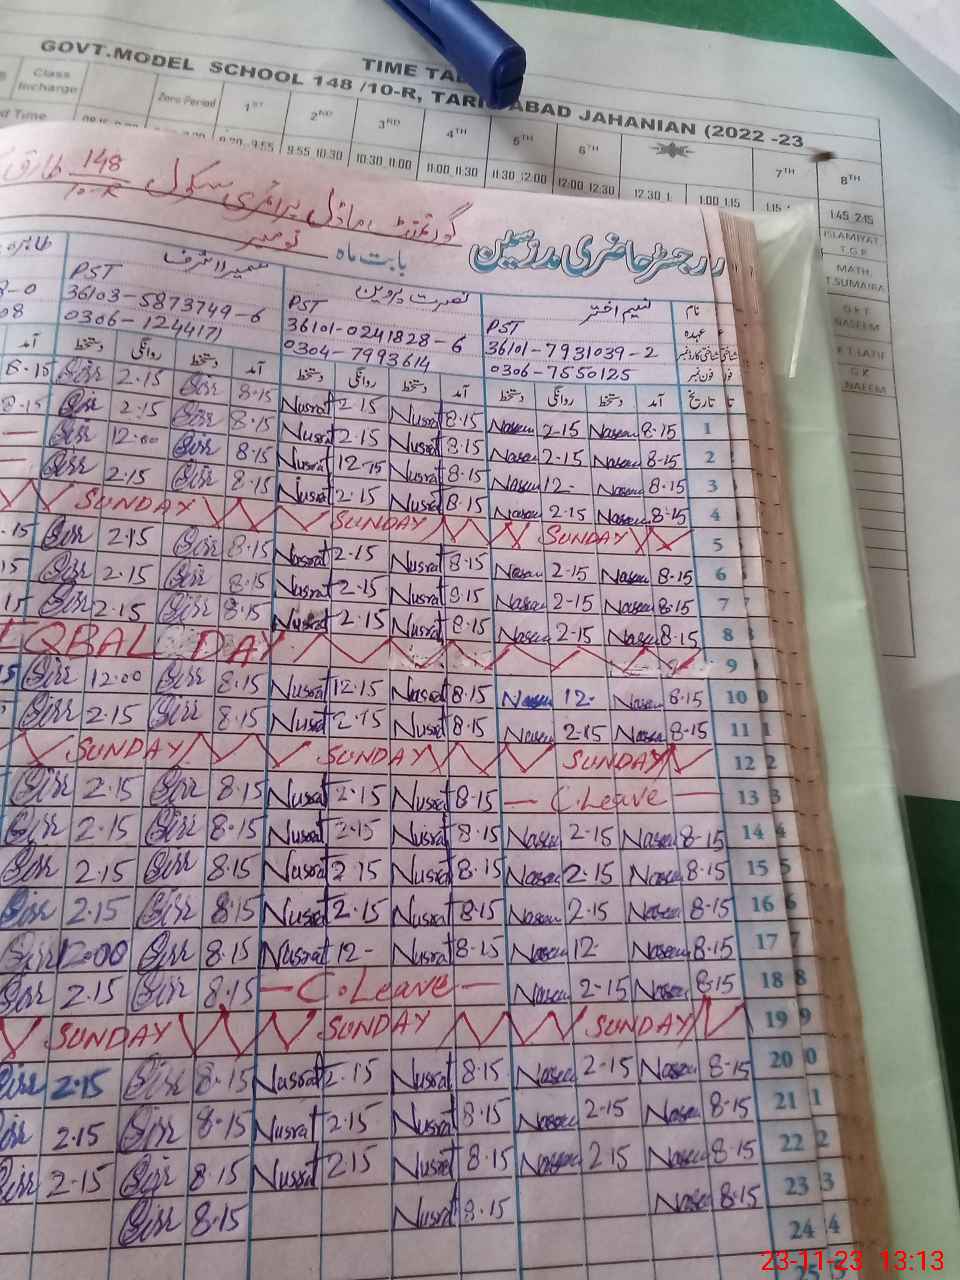 TIME TA
GOVT.MODEL SCHOOL 148 /10-R, TARI ABAD JAHANIAN (2022 -23
Class Incharge Zero Period 1ST 2ND 3RD 4TH 5TH 6TH 7TH 8TH
Time 9:55 10:30 10:30 11:00 11:00 11:30 11:30 12:00 12:00 12:30 12:30 1 1:00 1:15 1:45 2:15
ISLAMIYAT
T.G.R
MATH.
T.SUMAIRA
NASEEM
R.T.LATIF
G.K
NAEEM
گورنمنٹ ماڈل پرائمری سکول 148/10-R طارق
رجسٹر حاضری مدرسین
بابت ماہ نومبر
نام نسیم اختر نصرت پروین
عہدہ PST PST PST
شناختی کارڈ نمبر 36101-7931039-2 36101-0241828-6 36103-5873749-6
فون نمبر 0306-7550125 0304-7993614 0306-1244171
تاریخ آمد دستخط روانگی دستخط آمد دستخط روانگی دستخط آمد دستخط روانگی دستخط آمد
1 8-15 Naseem 2-15 Naseem 8.15 Nusrat 2.15 Nusrat 8.15 2.15 8.15
2 8-15 Naseem 2-15 Naseem 8.15 Nusrat 2.15 Nusrat 8.15 2.15 8.15
3 8-15 Naseem 12- Naseem 8.15 Nusrat 12.15 Nusrat 8.15 12.00 —
4 8-15 Naseem 2-15 Naseem 8.15 Nusrat 2.15 Nusrat 8.15 2.15 —
5 SUNDAY SUNDAY SUNDAY
6 8-15 Naseem 2-15 Naseem 8.15 Nusrat 2.15 Nusrat 8.15 2.15 .15
7 8-15 Naseem 2-15 Naseem 8.15 Nusrat 2.15 Nusrat 8.15 2.15 15
8 8-15 Naseem 2-15 Naseem 8.15 Nusrat 2.15 Nusrat 8.15 2.15 15
9 IQBAL DAY
10 8-15 Naseem 12- Naseem 8.15 Nusrat 12.15 Nusrat 8.15 12.00
11 8-15 Naseem 2-15 Naseem 8.15 Nusrat 2.15 Nusrat 8.15 2.15
12 SUNDAY SUNDAY SUNDAY
13 — C.Leave — 8.15 Nusrat 2.15 Nusrat 8.15 2.15
14 8-15 Naseem 2-15 Naseem 8.15 Nusrat 2.15 Nusrat 8.15 2.15
15 8-15 Naseem 2-15 Naseem 8.15 Nusrat 2.15 Nusrat 8.15 2.15
16 8-15 Naseem 2-15 Naseem 8.15 Nusrat 2.15 Nusrat 8.15 2.15
17 8-15 Naseem 12- Naseem 8.15 Nusrat 12- Nusrat 8.15 12.00
18 8-15 Naseem 2-15 Naseem — C.Leave — 8.15 2.15
19 SUNDAY SUNDAY SUNDAY
20 8-15 Naseem 2-15 Naseem 8.15 Nusrat 2.15 Nusrat 8.15 2.15
21 8-15 Naseem 2-15 Naseem 8.15 Nusrat 2.15 Nusrat 8.15 2.15
22 8-15 Naseem 2-15 Naseem 8.15 Nusrat 2.15 Nusrat 8.15 2.15
23 8-15 Naseem 8.15 Nusrat 8.15
24
25
23-11-23 13:13